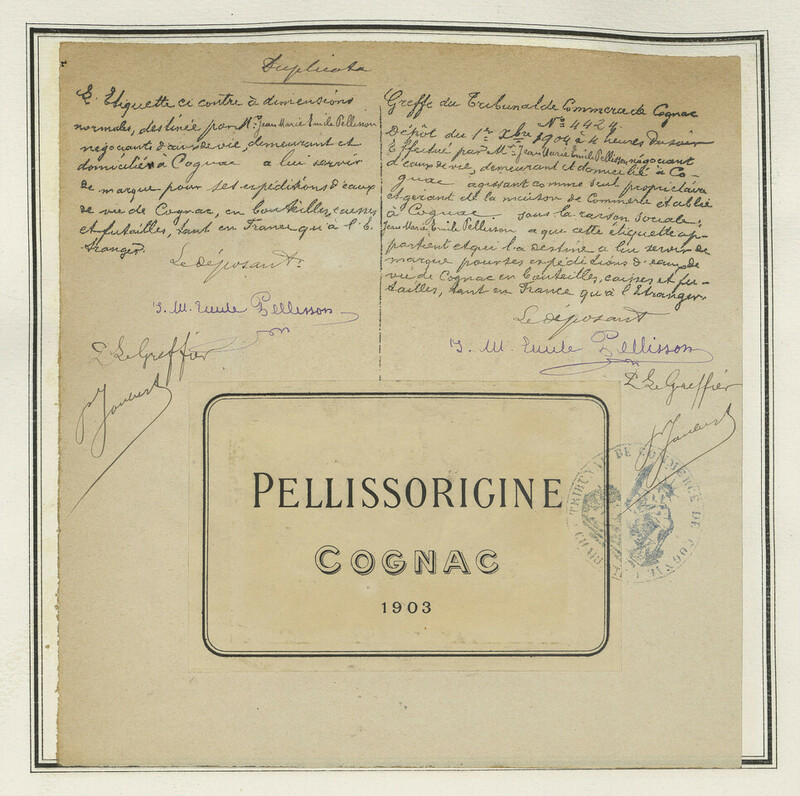 Duplicata
Etiquette ci contre à dimensions
normales, destinée par Mr. Jean Marie Emile Pellisson
négociant d'eaux de vie, demeurant et
domicilié à Cognac a lui servir
de marque pour ses expéditions d'eaux
de vie de Cognac, en bouteilles, caisses
et futailles, tant en France qu'à l'E-
tranger.
Le déposant.
J. M. Emile Pellisson
P. Le Greffier
Greffe du Tribunal de Commerce de Cognac
No. 4424.
Dépôt du 1er Xbre 1904 à 4 heures du soir
Effectué par Mr. Jean Marie Emile Pellisson négociant
d'eaux de vie, demeurant et domicilié à Co-
gnac agissant comme seul propriétaire
et gérant de la maison de Commerce établie
à Cognac. sous la raison sociale:
Jean Marie Emile Pellisson a que cette étiquette ap-
partient et qui l'a destine a lui servir de
marque pour ses expéditions d'eaux de
vie de Cognac en bouteilles, caisses et fu-
tailles, tant en France qu'à l'Etranger.
Le déposant
J. M. Emile Pellisson
P. Le Greffier
PELLISSORIGINE
COGNAC
1903
TRIBUNAL DE COMMERCE DE COGNAC